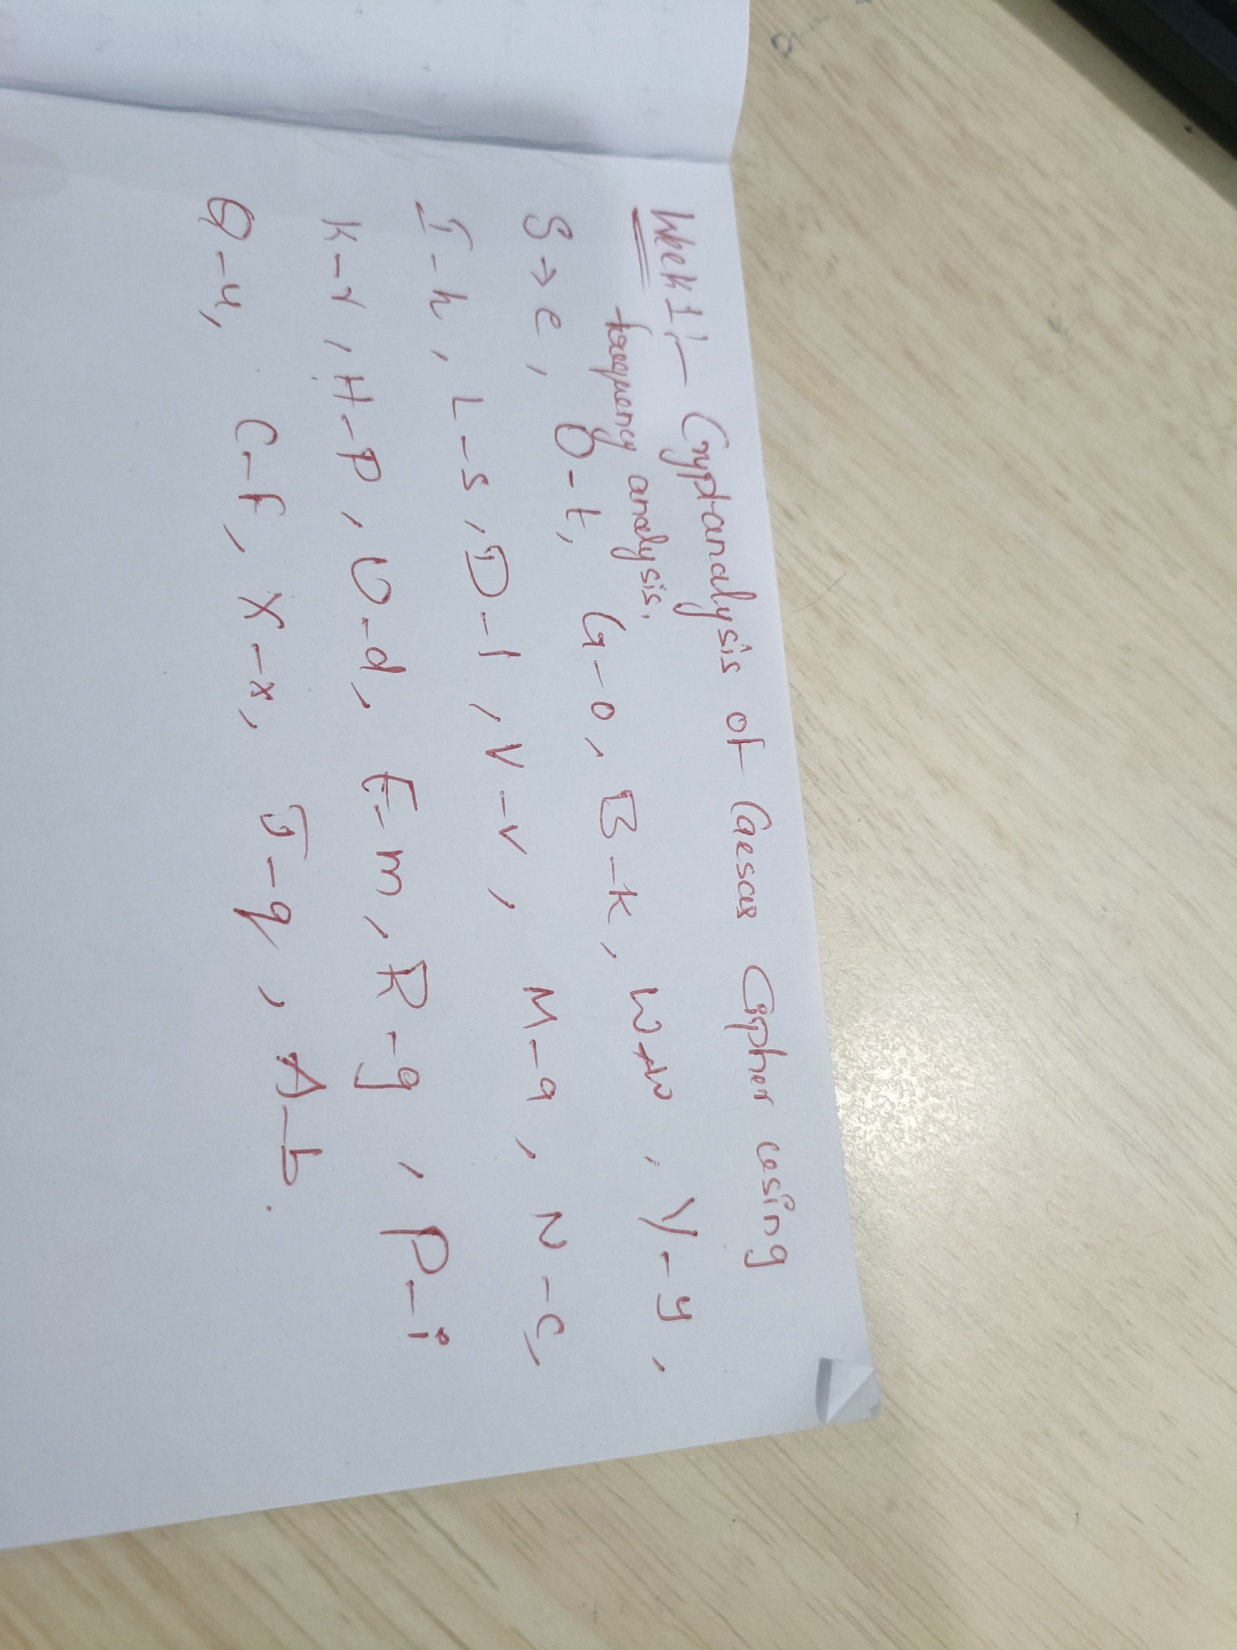 Week 1:- Cryptanalysis of Caesar Cipher using
frequency analysis.
S → e, O - t, G - o, B - k, W → w, Y - y,
I - h, L - s, D - l, V - v, M - a, N - c,
K - r, H - p, U - d, E - m, R - g, P - i
Q - u, C - f, X - x, J - q, A - b.